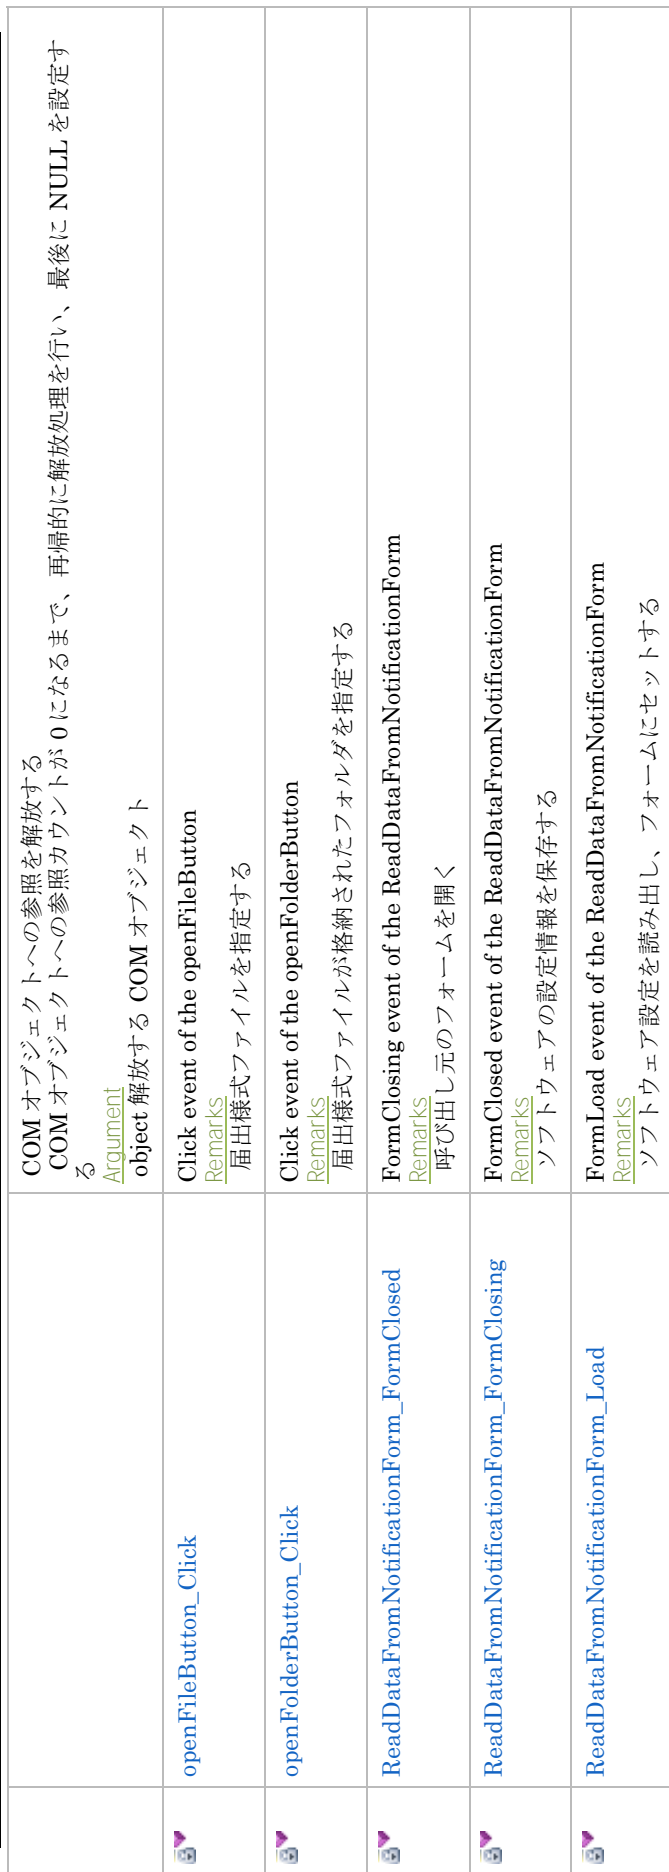 COM オブジェクトへの参照を解放する
COM オブジェクトへの参照カウントが 0 になるまで、再帰的に解放処理を行い、最後に NULL を設定す
る
Argument
object 解放する COM オブジェクト
openFileButton_Click
Click event of the openFileButton
Remarks
届出様式ファイルを指定する
openFolderButton_Click
Click event of the openFolderButton
Remarks
届出様式ファイルが格納されたフォルダを指定する
ReadDataFromNotificationForm_FormClosed
FormClosing event of the ReadDataFromNotificationForm
Remarks
呼び出し元のフォームを開く
ReadDataFromNotificationForm_FormClosing
FormClosed event of the ReadDataFromNotificationForm
Remarks
ソフトウェアの設定情報を保存する
ReadDataFromNotificationForm_Load
FormLoad event of the ReadDataFromNotificationForm
Remarks
ソフトウェア設定を読み出し、フォームにセットする